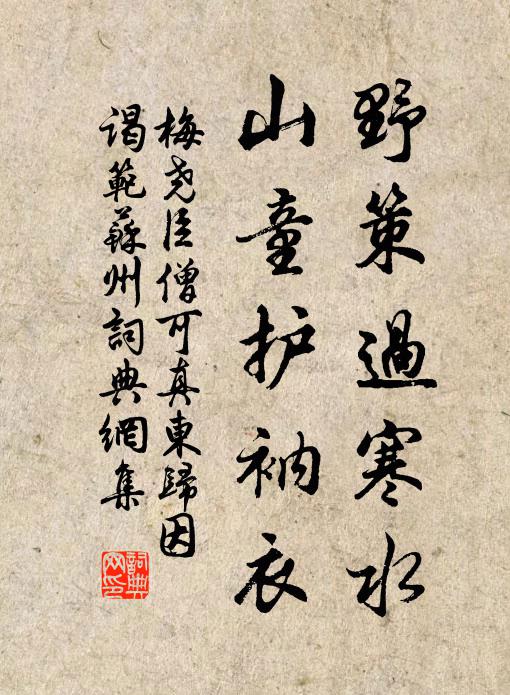 野策過寒水
山童护衲衣
梅尧臣僧可真東歸因
谒範蘇州詞典網集
詞典網印